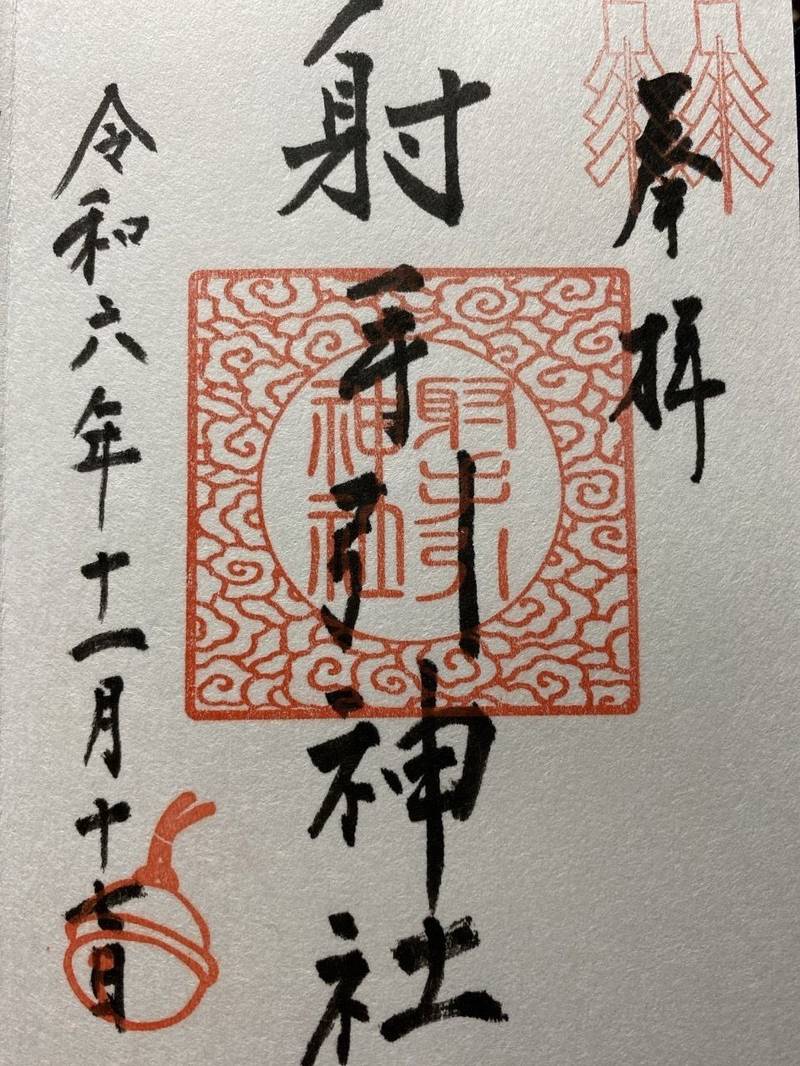 奉拝
射手引神社
射手引
神社
令和六年十一月十七日